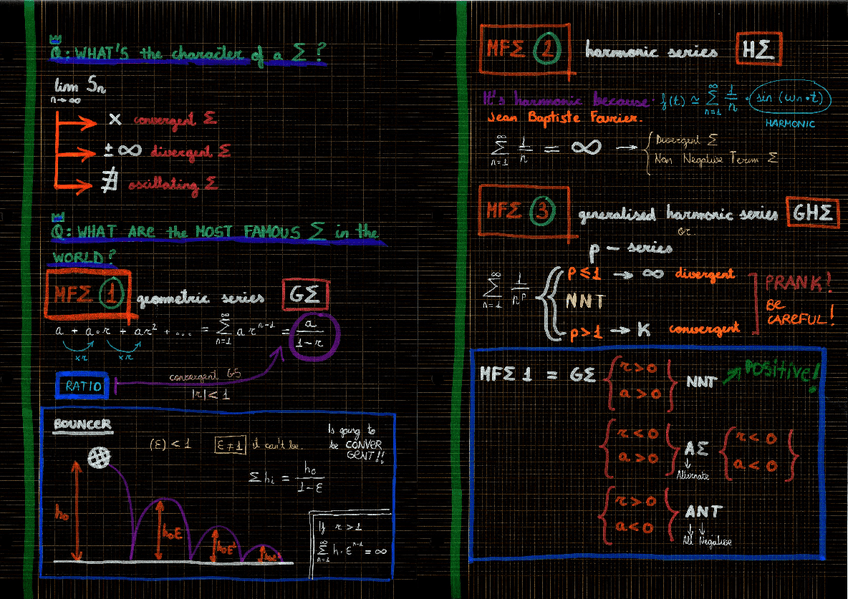 Q: WHAT'S the character of a Σ ?
lim Sn
n→∞
x convergent Σ
± ∞ divergent Σ
∄ oscillating Σ
Q: WHAT ARE the MOST FAMOUS Σ in the
WORLD?
MFΣ 1 geometric series GΣ
a + a·r + ar² + ... = Σ n=1 ∞ a r^n-1 = a/1-r
xr xr
RATIO convergent GS
|r| < 1
BOUNCER
(ε) < 1 ε ≠ 1 it can't be.
Is going to
be CONVER
GENT!!
Σ hi = h0/1-ε
h0
h0ε
h0ε²
If r > 1
Σ n=1 ∞ h·ε^n-1 = ∞
MFΣ 2 harmonic series HΣ
It's harmonic because f(t) ≃ Σ n=1 ∞ 1/n · sin (ωn·t)
Jean Baptiste Fourier.
HARMONIC
Σ n=1 ∞ 1/n = ∞ → { Divergent Σ
Non Negative Term Σ
MFΣ 3 generalised harmonic series GHΣ
or
p - series
Σ n=1 ∞ 1/n^p
p ≤ 1 → ∞ divergent
NNT
p > 1 → K convergent
PRANK!
BE
CAREFUL!
MFΣ 1 = GΣ { r > 0 a > 0 } NNT POSITIVE!
{ r < 0 a > 0 } AΣ { r < 0 a < 0 }
Alternate
{ r > 0 a < 0 } ANT
All Negative